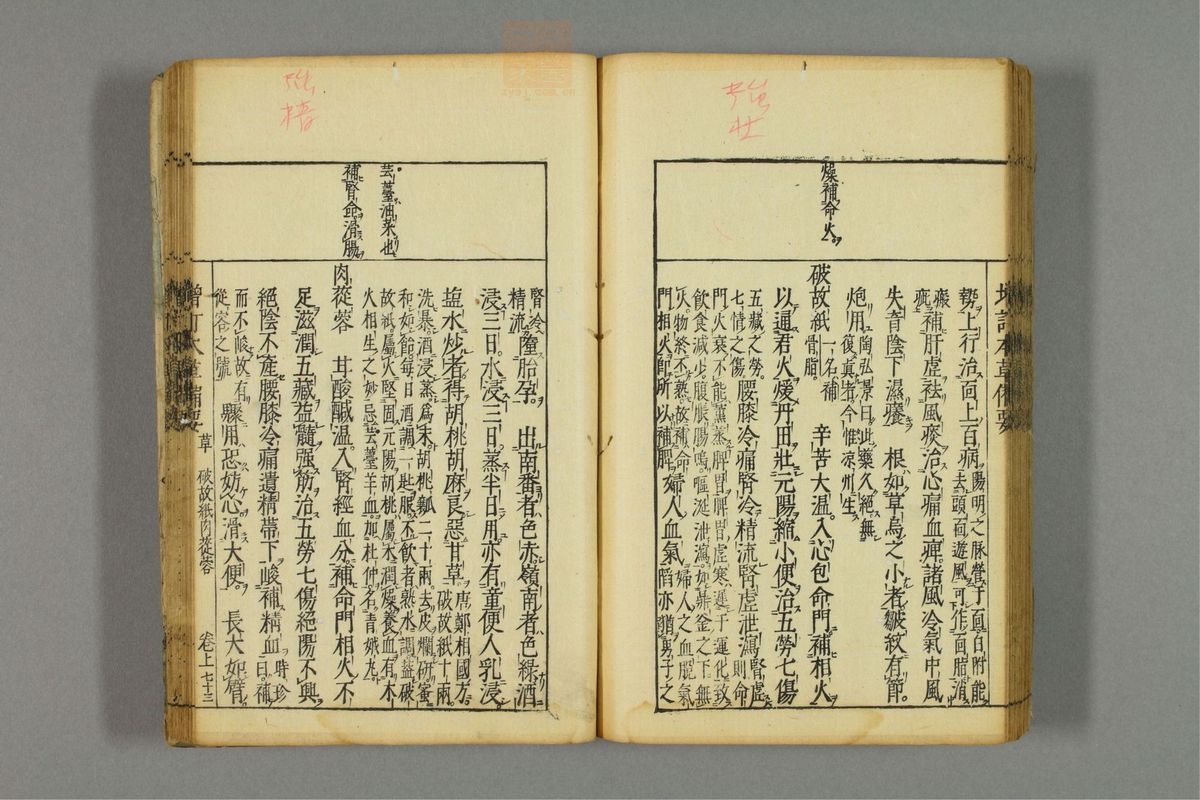 強
壮
燥補命火
増訂本草備要
勢上行治面上百病陽明之脉營于面白附能
去頭面遊風可作面脂消
瘢疵補肝虚祛風痰治心痛血痺諸風冷氣中風
失音陰下濕癢　根如草烏之小者皺紋有節
炮用陶弘景曰此藥久絶無
復真者今惟凉州生
破故紙一名補骨脂　辛苦大温入心包命門補相火
以通君火煖丹田壯元陽縮小便治五勞七傷
五藏之勞七情之傷腰膝冷痛腎冷精流腎虚泄瀉腎虚則命
門火衰不能薰蒸脾胃脾胃虚寒遲于運化致
飲食減少腹脹腸鳴嘔涎泄瀉如鼎釜之下無
火物終不熟故補命門相火即所以補脾婦人血氣婦人之血脱氣陷亦猶男子之
強
精
芸薹油菜也
補腎命滑腸
腎冷精流墮胎孕　出南番者色赤嶺南者色緑酒
浸三日水浸三日蒸半日用亦有童便人乳浸
塩水炒者得胡桃胡麻良惡甘草唐鄭相國方破故紙十兩
洗暴酒浸蒸爲末胡桃瓤二十兩去皮爛研蜜
和如飴每日酒調一匙服不飲者熱水調益破
故紙屬火堅固元陽胡桃屬木潤燥養血有木
火相生之妙忌芸薹羊血加杜仲名青娥丸
肉蓯蓉　甘酸鹹温入腎經血分補命門相火不
足滋潤五藏益髓强筋治五勞七傷絶陽不興
絶陰不産腰膝冷痛遺精帶下峻補精血時珍曰補
而不峻故有從容之號驟用恐妨心滑大便　長大如臂
増訂本草備要　草　破故紙肉蓯蓉　卷上七十三